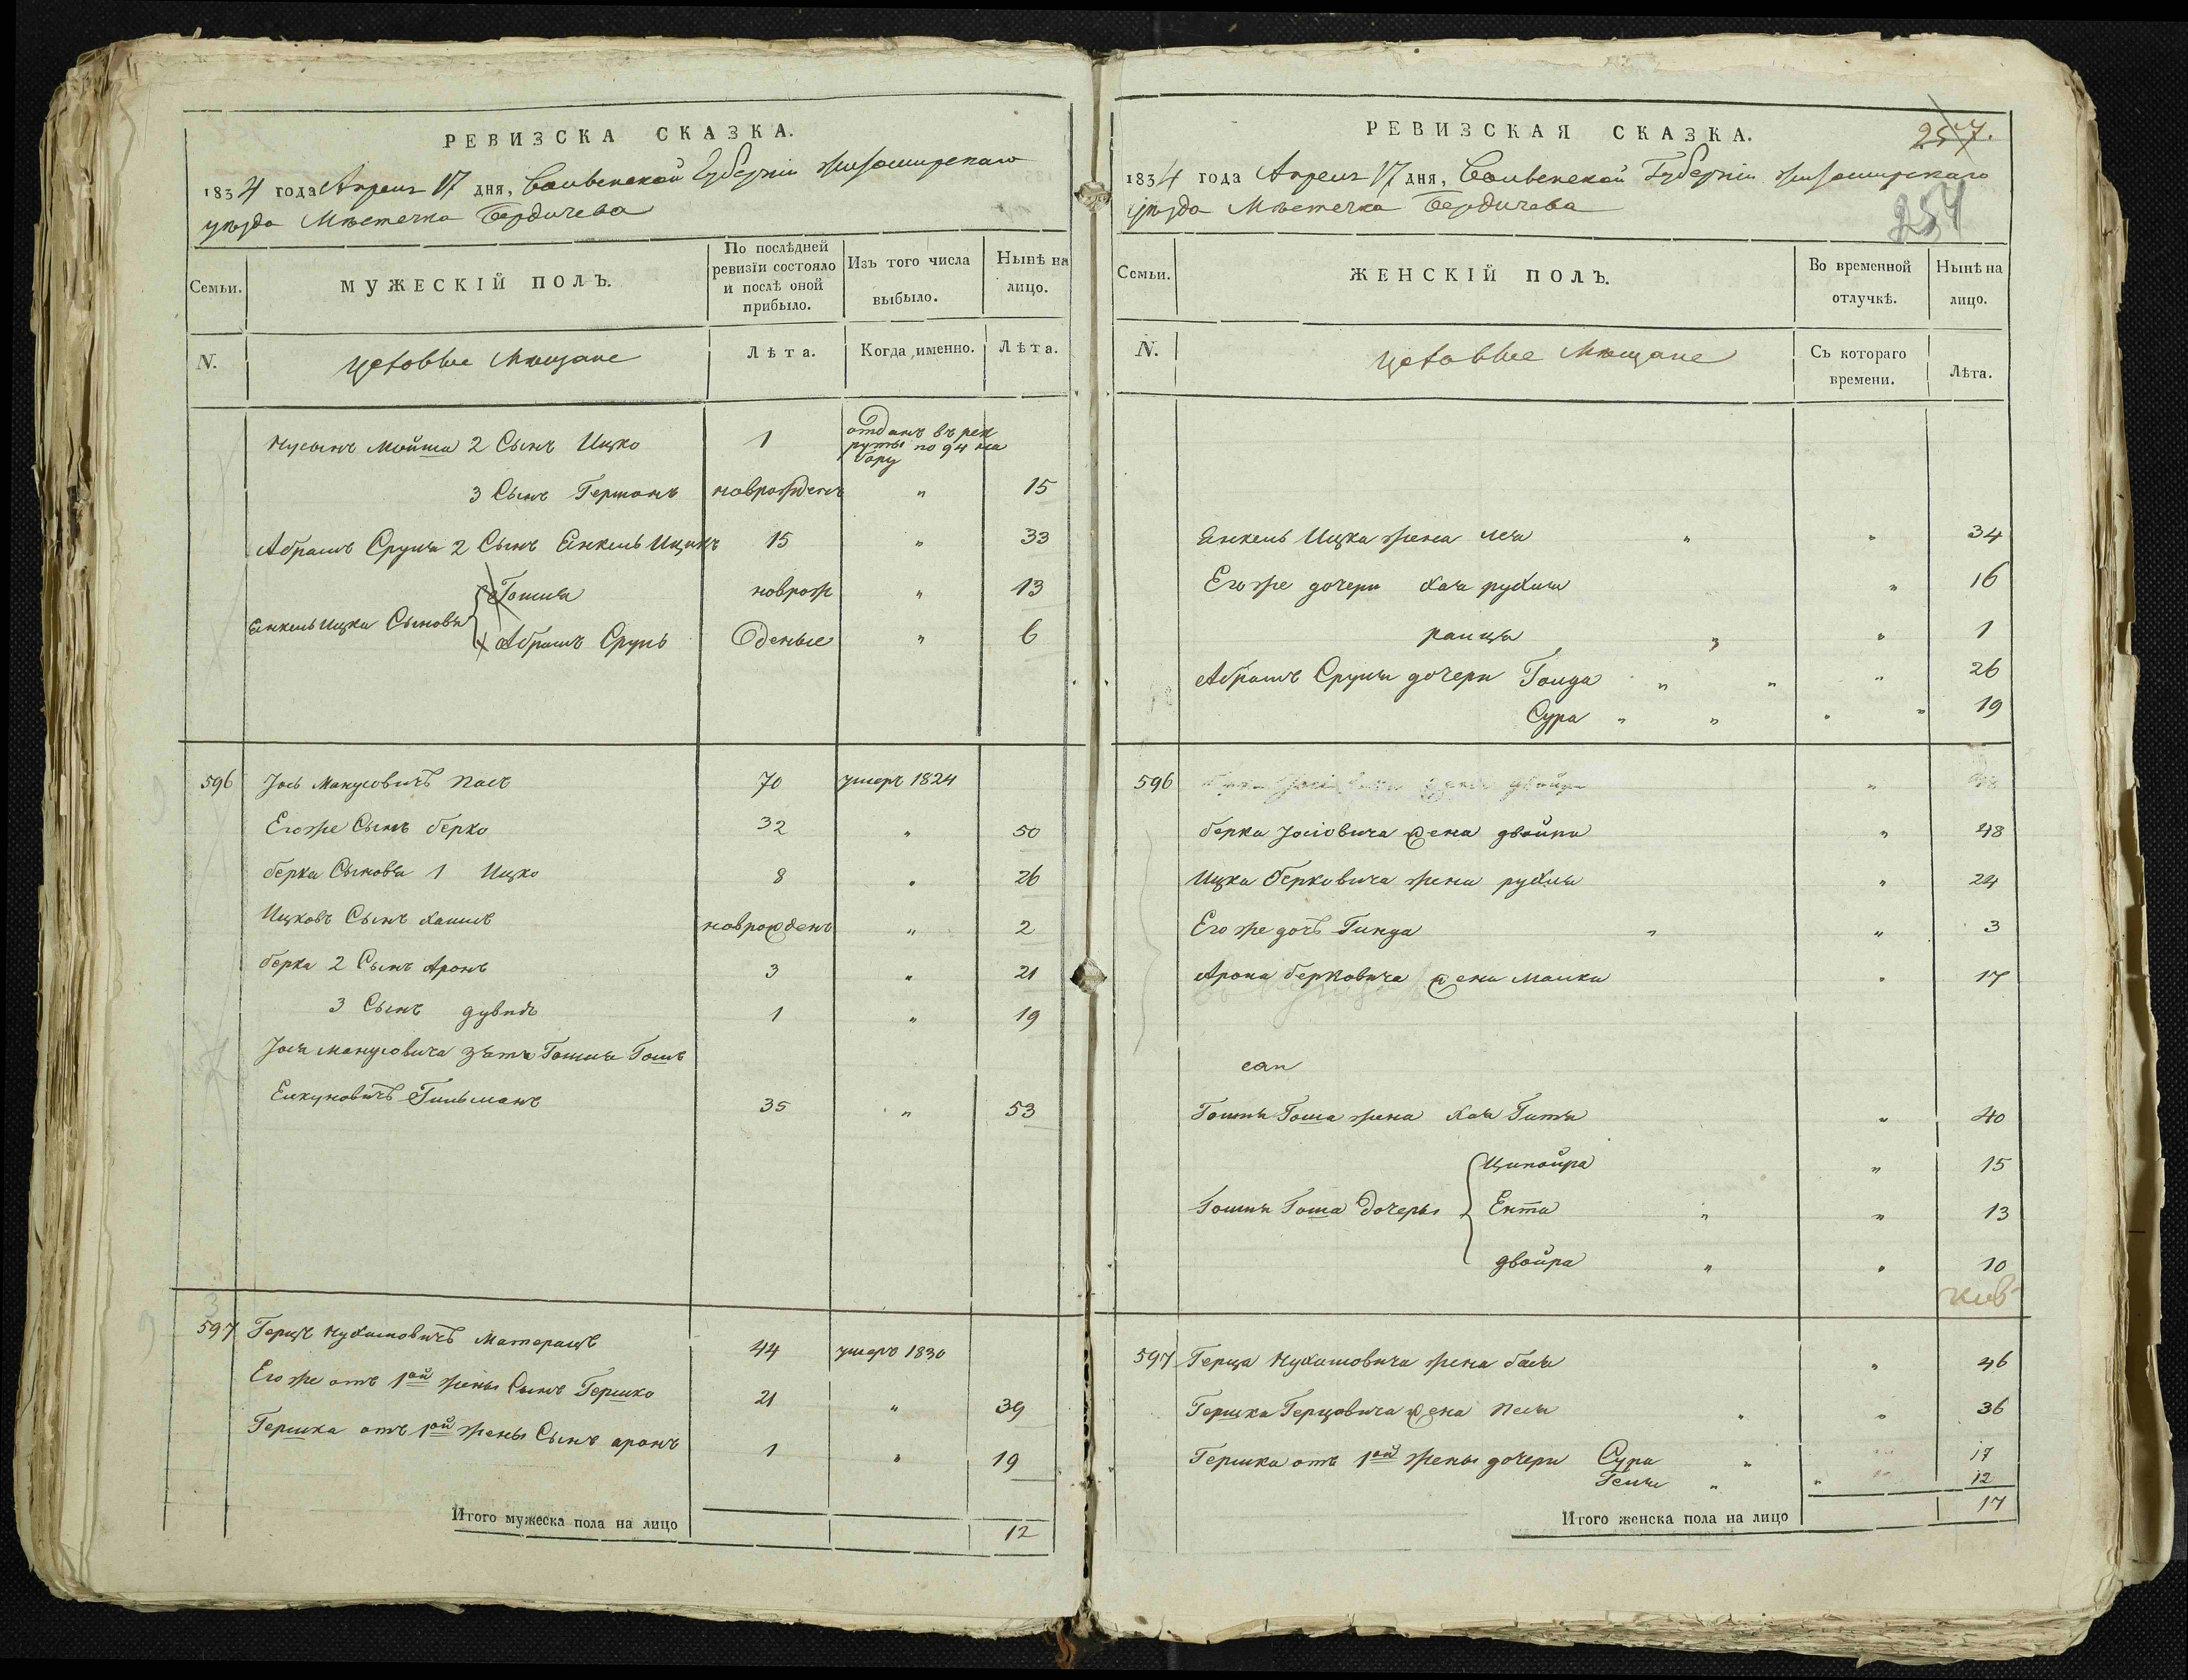 РЕВИЗСКА СКАЗКА.
1834 года Апреля 17 дня, Волынской Губерніи Житомирскаго
уѣзда Мѣстечка Бердичева
Семьи. МУЖЕСКІЙ ПОЛЪ. По послѣдней ревизіи состояло и послѣ оной прибыло. Изъ того числа выбыло. Нынѣ на лицо.
N. Цеховые Мѣщане Лѣта. Когда именно. Лѣта.
Нусынъ Мойша 2 Сынъ Ицко 1 отданъ въ рек
руты по 94 на
бору
3 Сынъ Гершонъ новрожденъ " 15
Абрамъ Сруля 2 Сынъ Янкель Ицикъ 15 " 33
Янкель Ицка Сыновья { новрож " 13
Абрамъ Сруль деные " 6
596 Іось Манусовичъ 70 умеръ 1824
Его же Сынъ берко 32 " 50
берка Сыновья 1 Ицко 8 " 26
Ицковъ Сынъ Хаимъ новрожденъ " 2
берка 2 Сынъ Аронъ 3 " 21
3 Сынъ дувидъ 1 " 19
Іося Манусовича зять
Гильманъ 35 " 53
597 Герцъ Нухимовичъ Матерацъ 44 умеръ 1830
Его же отъ 1ой жены Сынъ Гершко 21 " 39
Гершка отъ 1ой жены Сынъ аронъ 1 " 19
Итого мужеска пола на лицо 12
РЕВИЗСКАЯ СКАЗКА. 257.
1834 года Апреля 17 дня, Волынской Губерніи Житомирскаго
уѣзда Мѣстечка Бердичева 257
Семьи. ЖЕНСКІЙ ПОЛЪ. Во временной отлучкѣ. Нынѣ на лицо.
N. Цеховые Мѣщане Съ котораго времени. Лѣта.
Янкель Ицка жена Лея " " 34
Его же дочери Хая рухля " 16
раица " " 1
Абрамъ Сруля дочери Голда " " " 26
Сура " " " " 19
596 "
берка Іосіовича жена двойра " 48
Ицка берковича жена рухля " 24
Его же дочь Гинда " " 3
Арона берковича жена малка " 17
жена Хая Гитля " 40
Ципойра " 15
дочеры { Ента " " 13
двойра " " 10
597 Герца Нухимовича жена бася " 46
Гершка Герцовича жена песя " " 36
Гершка отъ 1ой жены дочери Сура " " 17
" " " 12
Итого женска пола на лицо 17